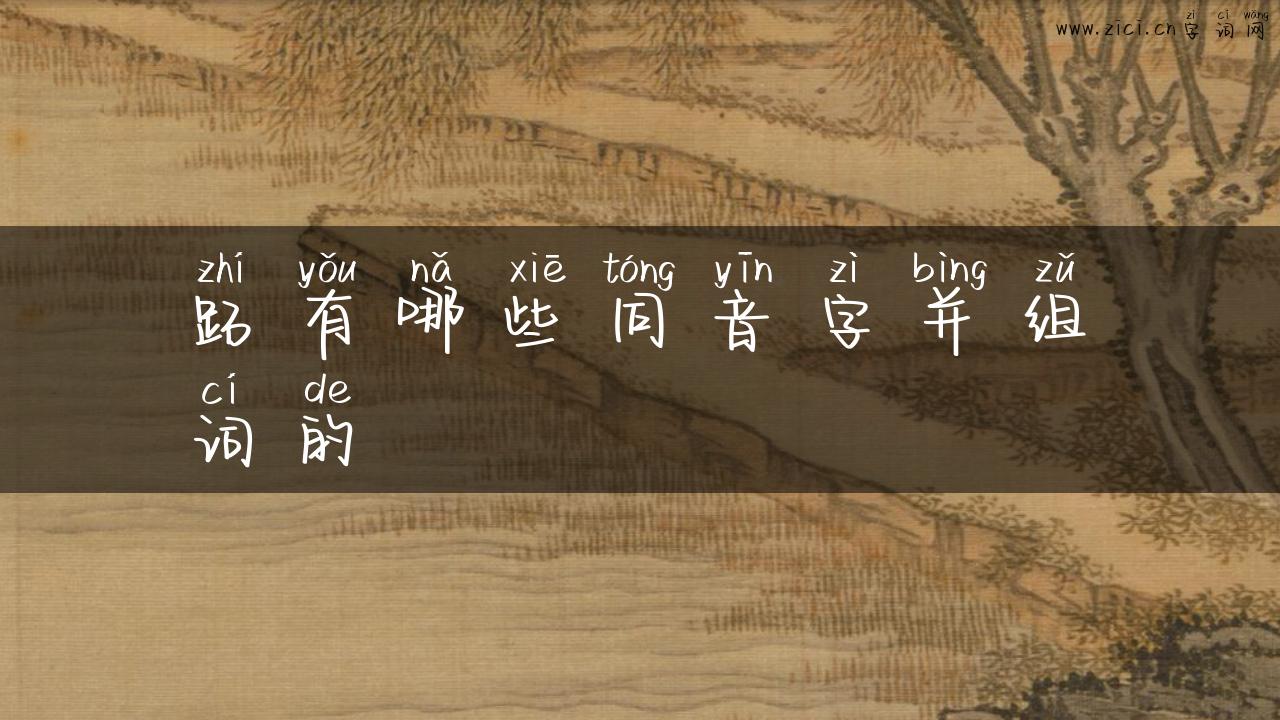 zì cí wǎng
www.zici.cn字词网
zhí yǒu nǎ xiē tóng yīn zì bìng zǔ
跖有哪些同音字并组
cí de
词的